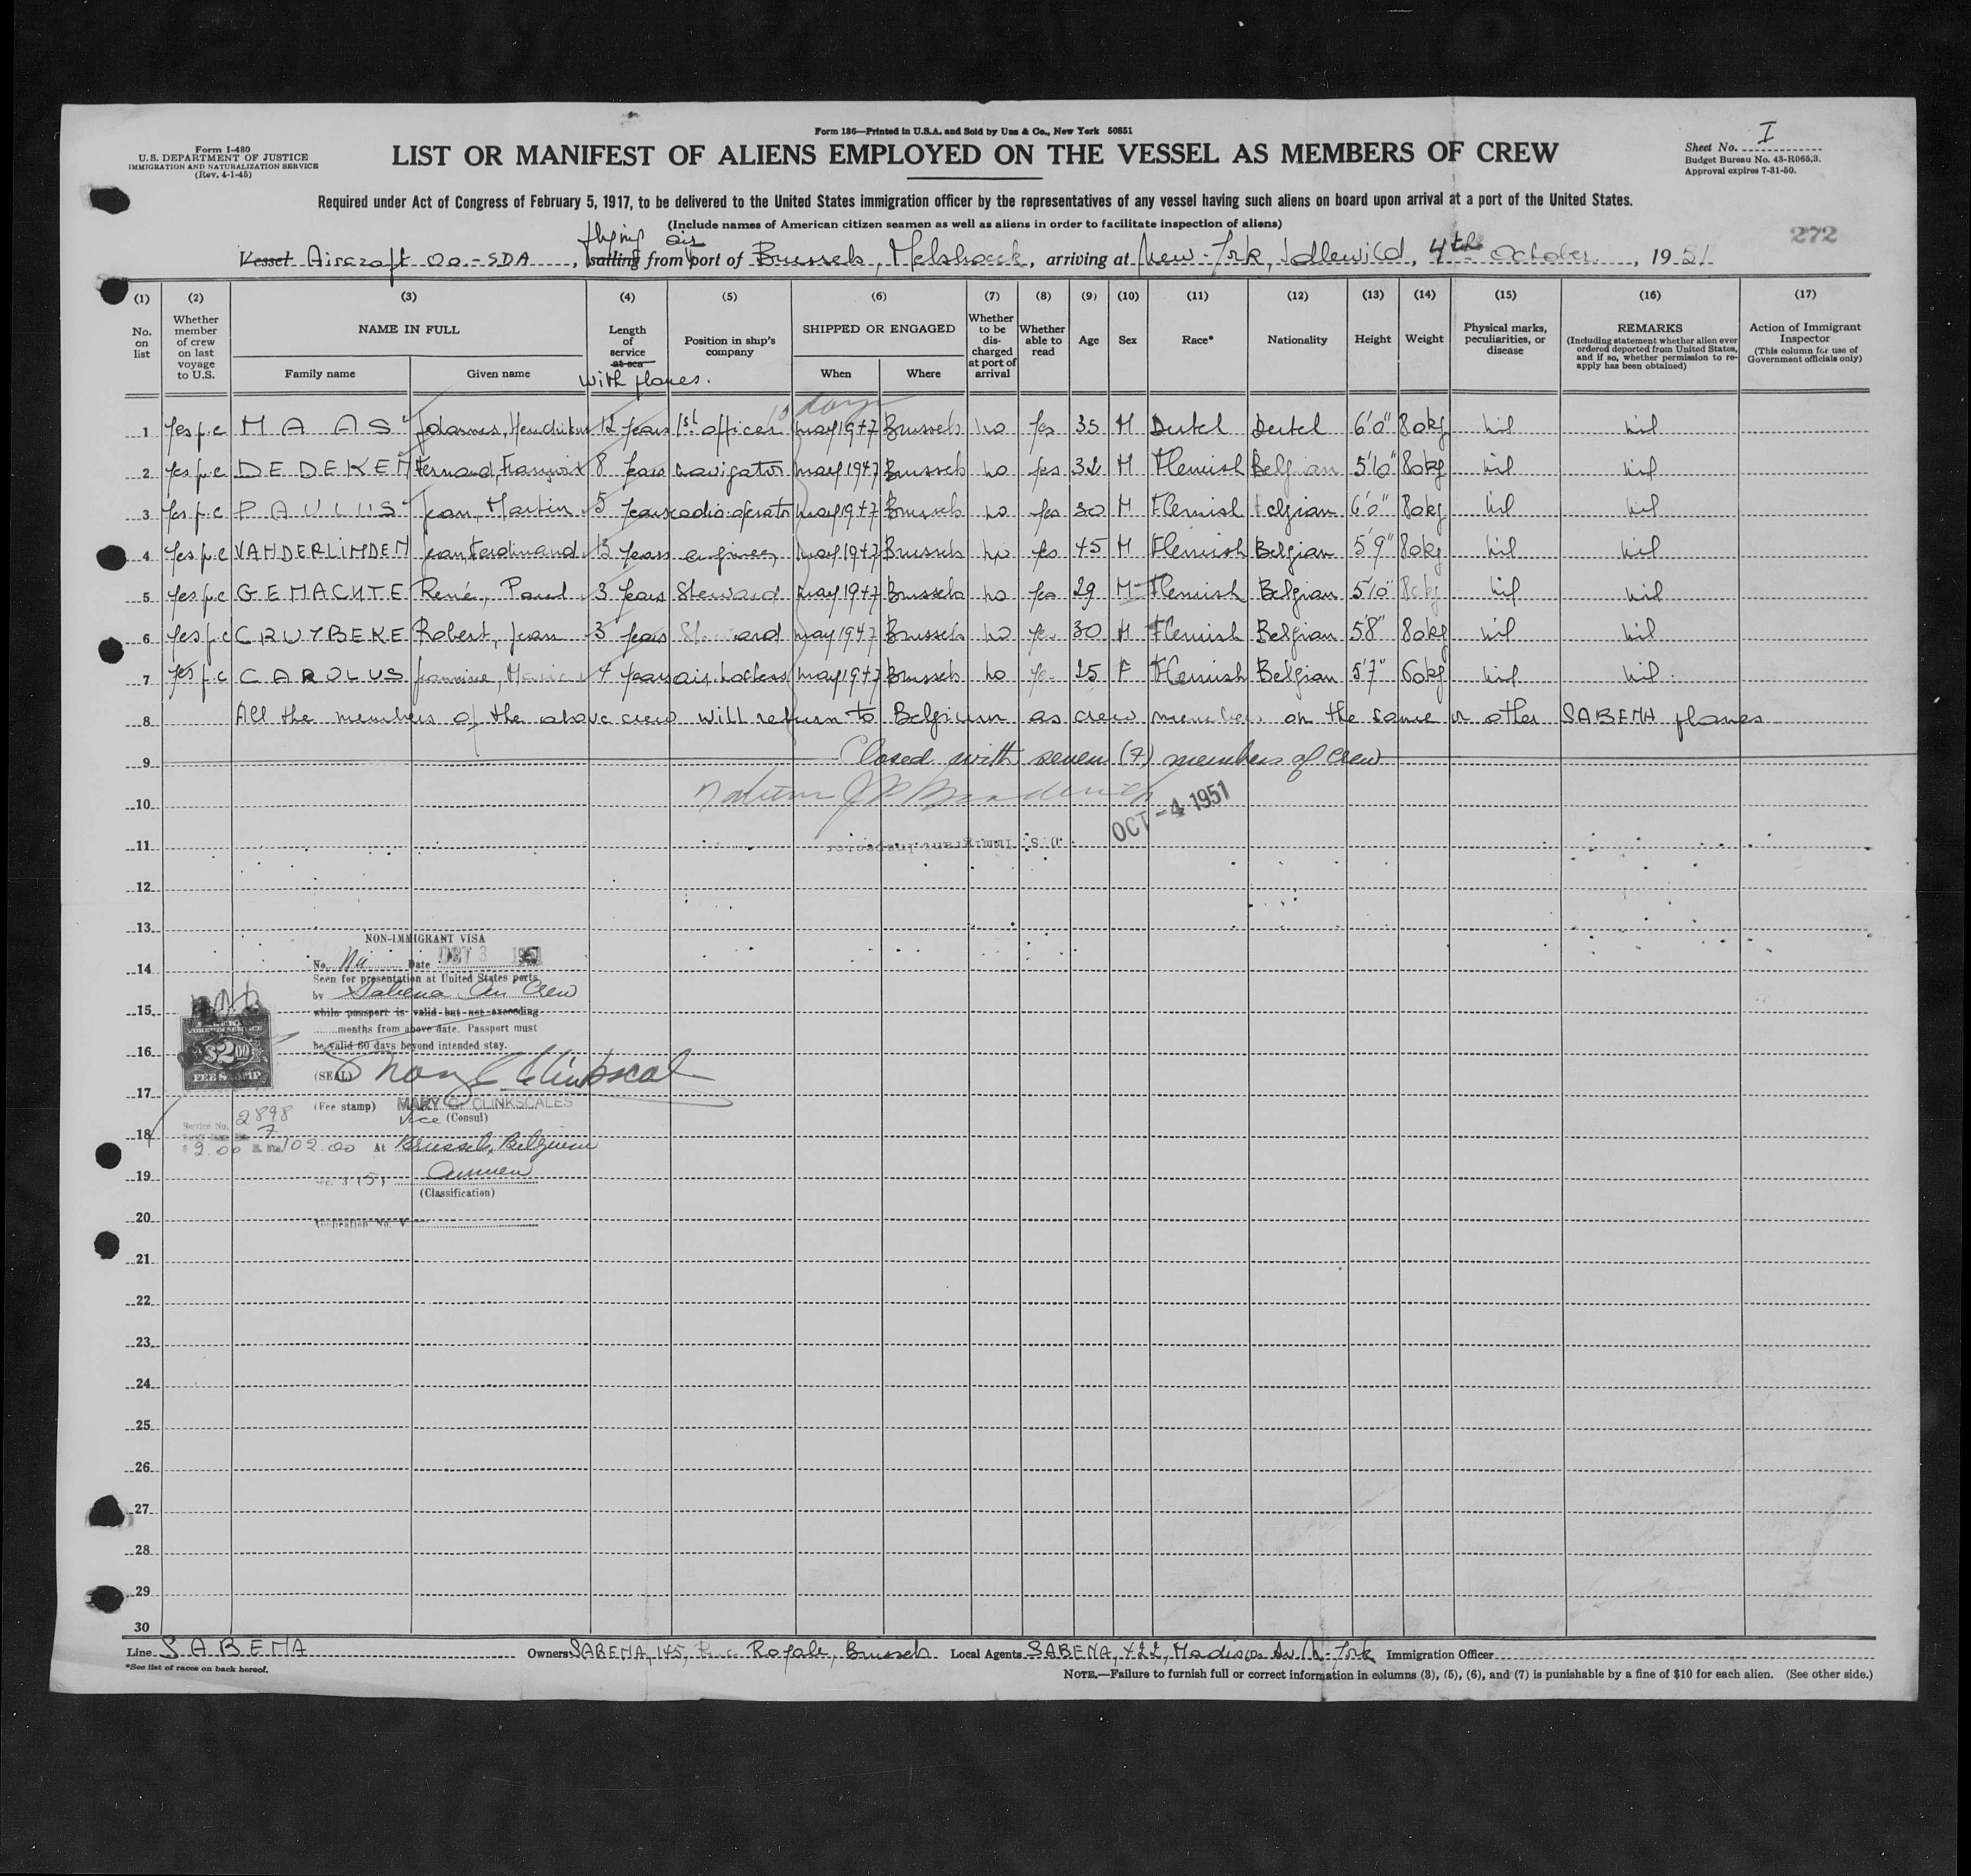 Form 186—Printed in U.S.A. and Sold by Unz & Co., New York 50851
Form I-480
U.S. DEPARTMENT OF JUSTICE
IMMIGRATION AND NATURALIZATION SERVICE
(Rev. 4-1-45)
LIST OR MANIFEST OF ALIENS EMPLOYED ON THE VESSEL AS MEMBERS OF CREW
Sheet No. I
Budget Bureau No. 43-R065.3.
Approval expires 7-31-50.
Required under Act of Congress of February 5, 1917, to be delivered to the United States immigration officer by the representatives of any vessel having such aliens on board upon arrival at a port of the United States.
(Include names of American citizen seamen as well as aliens in order to facilitate inspection of aliens)
272
flying air
Vessel Aircraft OO-SDA, sailing from port of Brussels, Melsbroeck, arriving at New-York, Idlewild, 4th October, 1951
(1) (2) (3) (4) (5) (6) (7) (8) (9) (10) (11) (12) (13) (14) (15) (16) (17)
No. on list
Whether member of crew on last voyage to U.S.
NAME IN FULL
Family name
Given name
Length of service at sea
with planes.
Position in ship's company
SHIPPED OR ENGAGED
When
Where
Whether to be discharged at port of arrival
Whether able to read
Age
Sex
Race*
Nationality
Height
Weight
Physical marks, peculiarities, or disease
REMARKS
(Including statement whether alien ever ordered deported from United States, and if so, whether permission to reapply has been obtained)
Action of Immigrant Inspector
(This column for use of Government officials only)
10 days
1 Yes p.c MAAS Hendrikus 12 Years 1st officer may 1947 Brussels no yes 35 M Dutch Dutch 6'0" 80kg nil nil
2 Yes p.c DEDEKEN Fernand, François 8 Years navigator may 1947 Brussels no yes 32 M Flemish Belgian 5'10" 80kg nil nil
3 Yes p.c PAULUS Jean, Martin 5 Years radio operator may 1947 Brussels no yes 30 M Flemish Belgian 6'0" 80kg nil nil
4 Yes p.c VANDERLINDEN Jean, Ferdinand 13 Years engineer may 1947 Brussels no yes 45 M Flemish Belgian 5'9" 80kg nil nil
5 Yes p.c GEMACHTE René, Paul 3 Years Steward may 1947 Brussels no yes 29 M Flemish Belgian 5'10" 80kg nil nil
6 Yes p.c CRUYBEKE Robert, Jean 3 Years Steward may 1947 Brussels no yes 30 M Flemish Belgian 5'8" 80kg nil nil
7 Yes p.c CAROLUS 4 Years air hostess may 1947 Brussels no yes 25 F Flemish Belgian 5'7" 60kg nil nil
8 All the members of the above crew will return to Belgium as crew members on the same or other SABENA planes
9 Closed with seven (7) members of Crew
10
OCT -4 1951
11 U.S. Immigrant Inspector
12
13
NON-IMMIGRANT VISA
14 No. Date OCT 3 1951
Seen for presentation at United States ports
by Sabena Air Crew
15 while passport is valid but not exceeding
months from above date. Passport must
16 be valid 60 days beyond intended stay.
$2.00
FEE STAMP
(SEAL)
17
(Fee stamp) MARY C. CLINKSCALES
Vice (Consul)
Service No. 2898
7
18
2.00 102.00 At Brussels, Belgium
19
(Classification)
20 Application No. V
21
22
23
24
25
26
27
28
29
30
Line SABENA Owners SABENA, 145, Rue Royale, Brussels Local Agents SABENA, 422, Madison Av. N-York Immigration Officer
*See list of races on back hereof.
NOTE.—Failure to furnish full or correct information in columns (3), (5), (6), and (7) is punishable by a fine of $10 for each alien. (See other side.)